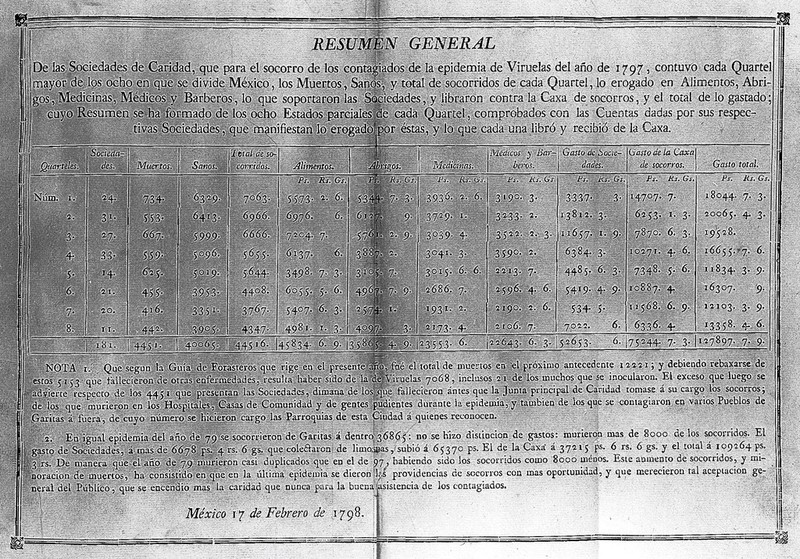 RESUMEN GENERAL
De las Sociedades de Caridad, que para el socorro de los contagiados de la epidemia de Viruelas del año de 1797, contuvo cada Quartel
mayor de los ocho en que se divide México, los Muertos, Sanos, y total de socorridos de cada Quartel, lo erogado en Alimentos, Abri-
gos, Medicinas, Médicos y Barberos, lo que soportaron las Sociedades, y libraron contra la Caxa de socorros, y el total de lo gastado;
cuyo Resumen se ha formado de los ocho Estados parciales de cada Quartel, comprobados con las Cuentas dadas por sus respec-
tivas Sociedades, que manifiestan lo erogado por éstas, y lo que cada una libró y recibió de la Caxa.
Quarteles. Socieda-des. Muertos. Sanos. Total de so-corridos. Alimentos. Abrigos. Medicinas. Médicos y Bar-beros. Gasto de Socie-dades. Gasto de la Caxa de socorros. Gasto total.
Ps. Rs. Gs. Ps. Rs. Gs. Ps. Rs. Gs. Ps. Rs. Gs. Ps. Rs. Gs. Ps. Rs. Gs. Ps. Rs. Gs.
Núm. 1. 24. 734. 6329. 7063. 5573. 2. 6. 5344. 7. 3. 3936. 2. 6. 3190. 3. 3337. 3. 14707. 7. 18044. 7. 3.
2. 31. 553. 6413. 6966. 6976. 6. 9. 3729. 1. 3233. 2. 13812. 3. 6253. 1. 3. 20065. 4. 3.
3. 27. 667. 5999. 6666. 7204. 7. 2. 9. 3039. 4. 3522. 2. 3. 11657. 1. 9. 7870. 6. 3. 19528.
4. 33. 559. 5096. 5655. 6137. 6. 2. 3041. 3. 3590. 2. 6384. 3. 10271. 4. 6. 16655. 7. 6.
5. 14. 625. 5019. 5644. 3498. 7. 3. 7. 3015. 6. 6. 2213. 7. 4485. 6. 3. 7348. 5. 6. 11834. 3. 9.
6. 21. 455. 3953. 4408. 6055. 5. 6. 4967. 7. 9. 2686. 7. 2596. 4. 6. 5419. 4. 9. 10887. 4. 16307. 9.
7. 20. 416. 3351. 3767. 5407. 6. 3. 2574. 1. 1931. 2. 2190. 2. 6. 534. 5. 11568. 6. 9. 12103. 3. 9.
8. 11. 442. 3905. 4347. 4981. 1. 3. 4097. 3. 2173. 4. 2106. 7. 7022. 6. 6336. 4. 13358. 4. 6.
181. 4451. 40065. 44516. 45834. 6. 9. 4. 9. 23553. 6. 22643. 6. 3. 52653. 6. 75244. 7. 3. 127897. 7. 9.
NOTA 1. Que segun la Guia de Forasteros que rige en el presente año, fué el total de muertos en el próximo antecedente 12221; y debiendo rebaxarse de
estos 5153 que fallecieron de otras enfermedades, resulta haber sido la de Viruelas 7068, inclusos 21 de los muchos que se inocularon. El exceso que luego se
advierte respecto de los 4451 que presentan las Sociedades, dimana de los que fallecieron antes que la Junta principal de Caridad tomase á su cargo los socorros;
de los que murieron en los Hospitales, Casas de Comunidad y de gentes pudientes durante la epidemia, y tambien de los que se contagiaron en varios Pueblos de
Garitas á fuera, de cuyo número se hicieron cargo las Parroquias de esta Ciudad á quienes reconocen.
2. En igual epidemia del año de 79 se socorrieron de Garitas á dentro 36865: no se hizo distincion de gastos: murieron mas de 8000 de los socorridos. El
gasto de Sociedades, á mas de 6678 ps. 4 rs. 6 gs. que colectaron de limosnas, subió á 65370 ps. El de la Caxa á 37215 ps. 6 rs. 6 gs. y el total á 109264 ps.
3 rs. De manera que el año de 79 murieron casi duplicados que en el de 97, habiendo sido los socorridos como 8000 ménos. Este aumento de socorridos, y mi-
noracion de muertos, ha consistido en que en la última epidemia se dieron las providencias de socorros con mas oportunidad, y que merecieron tal aceptacion ge-
neral del Público, que se encendió mas la caridad que nunca para la buena asistencia de los contagiados.
México 17 de Febrero de 1798.